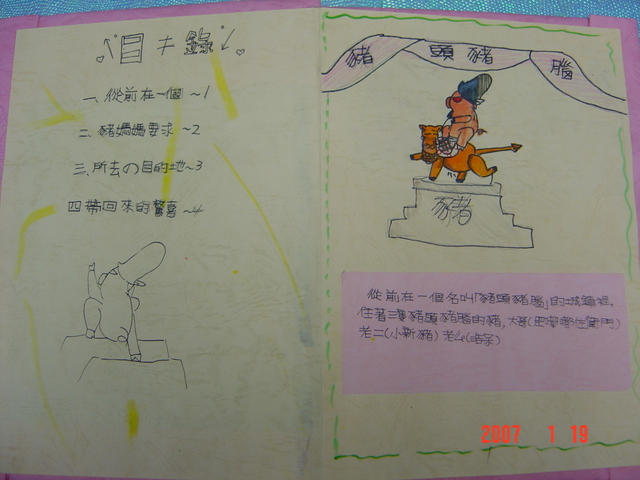 目錄
一、從前在一個～1
二、豬媽媽要求～2
三、所去の目的地～3
四帶回來的驚喜～4
豬頭豬腦
豬
從前在一個名叫「豬頭豬腦」的城鎮裡,
住著三隻豬頭豬腦的豬,大哥(肥嘟嘟左衛門)
老二(小新豬)老么(呆)
2007 1 19